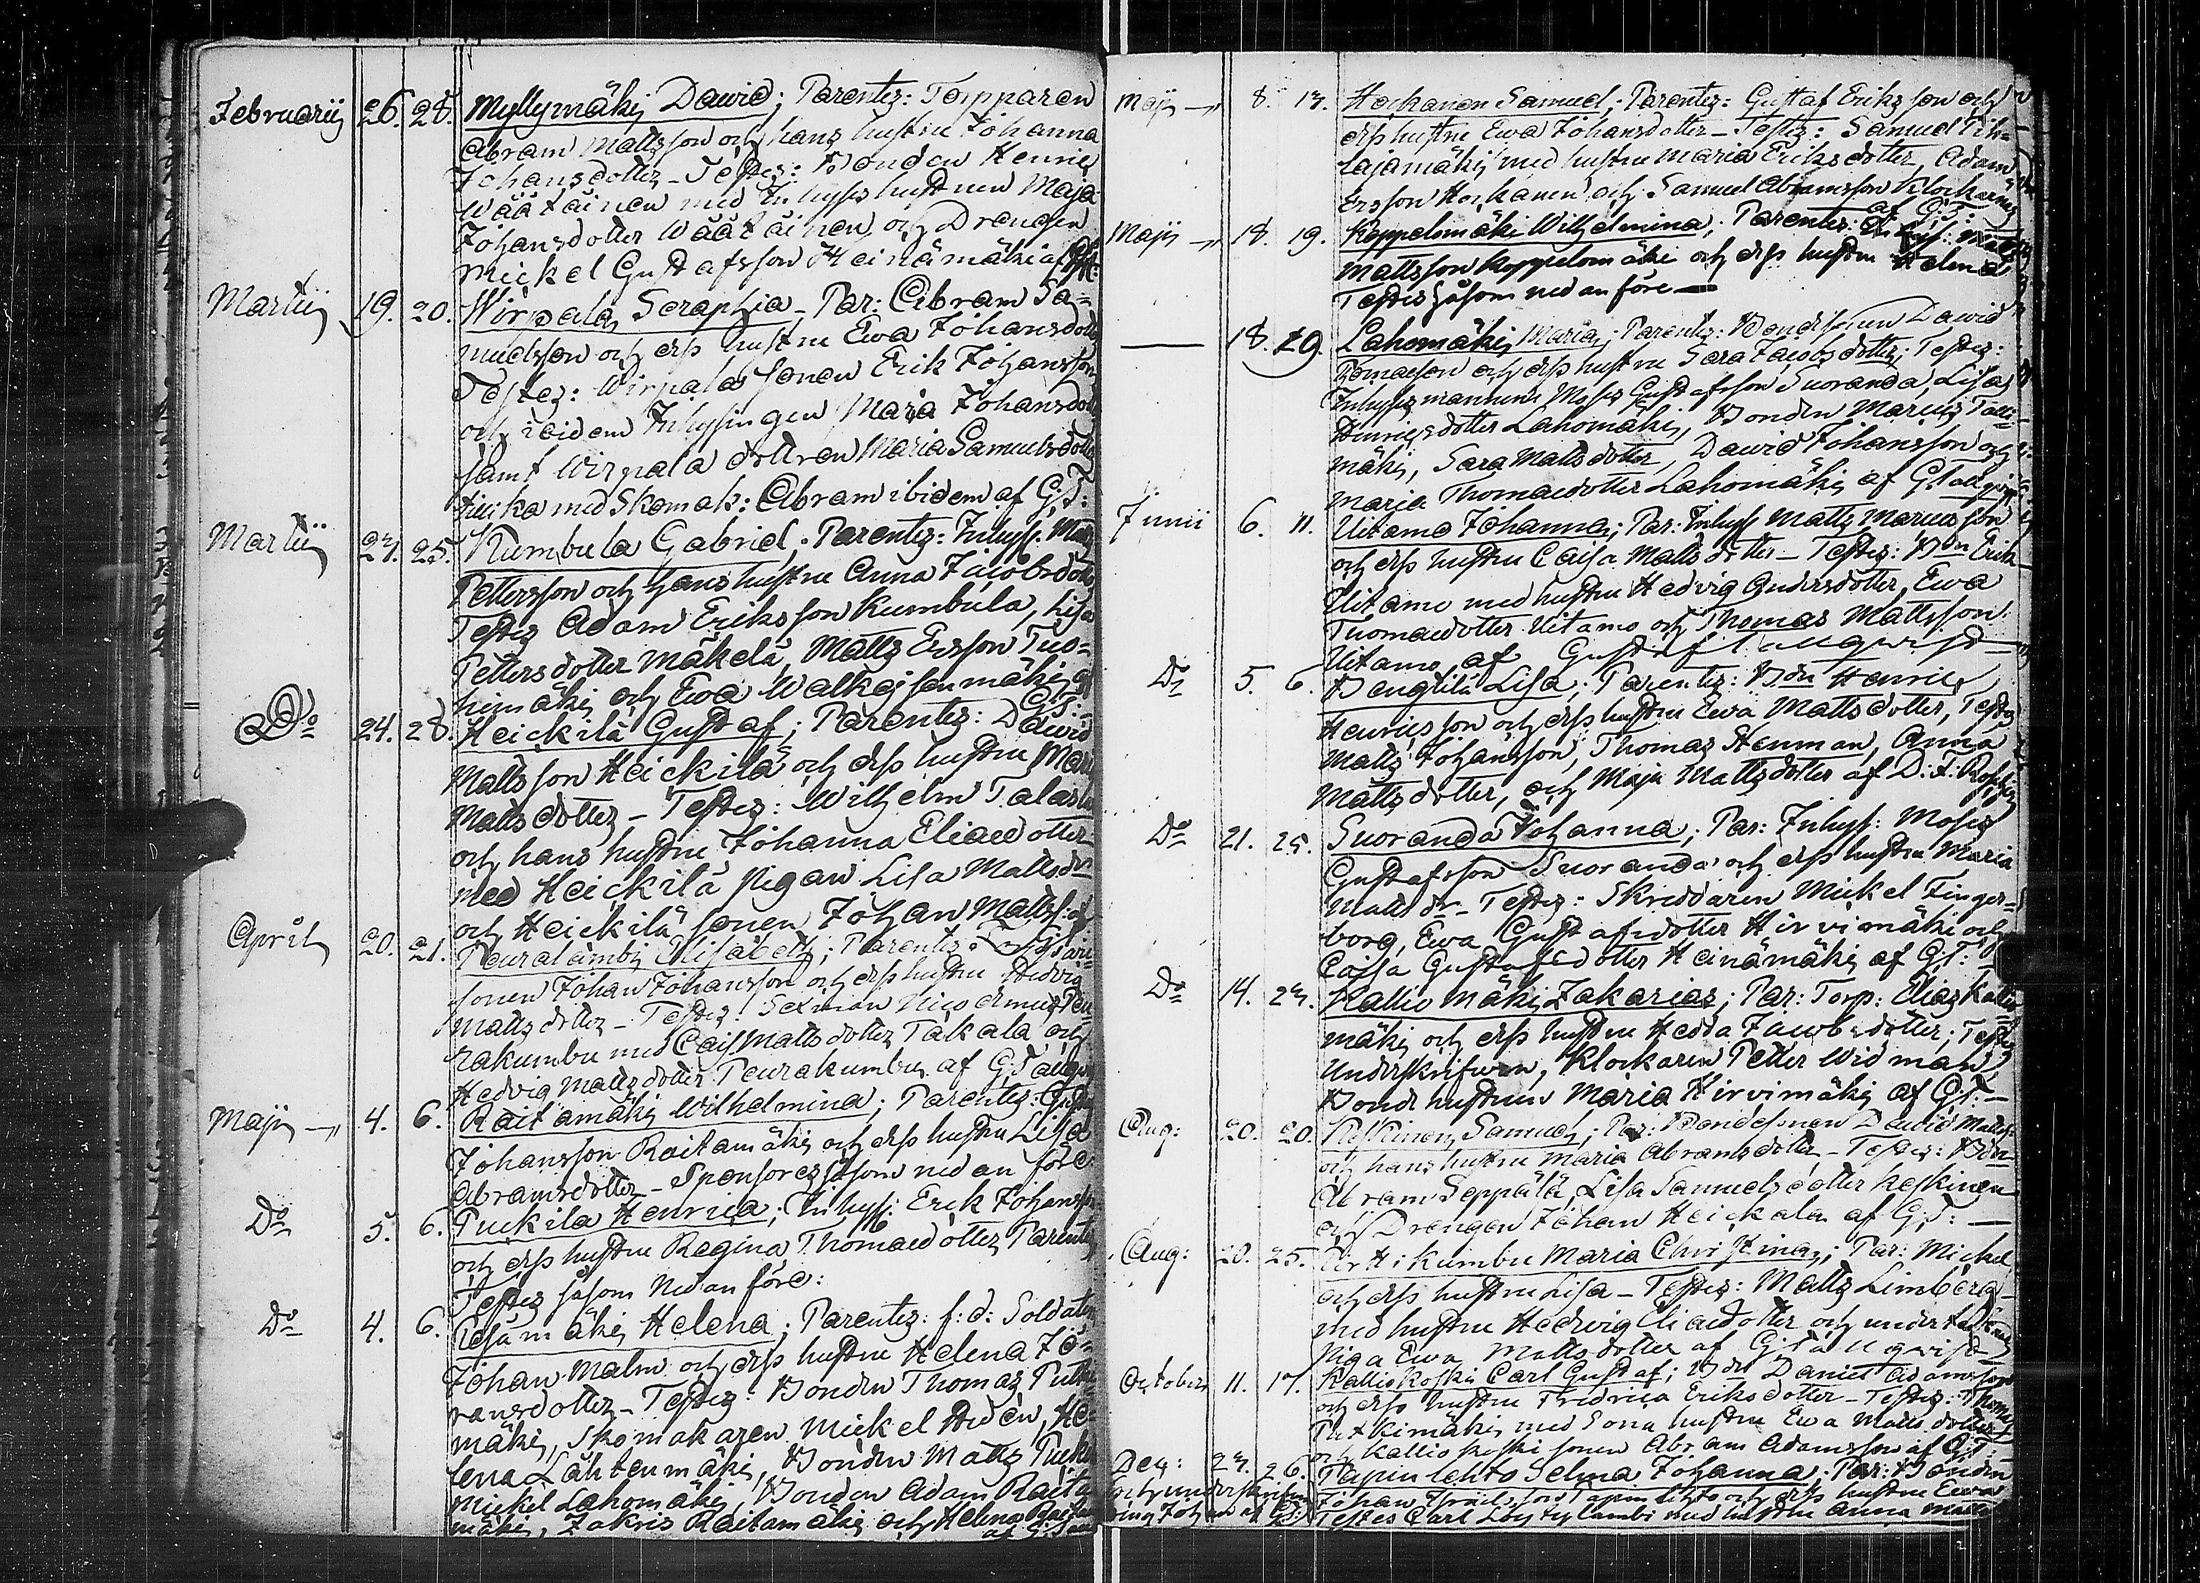 Februarij 26. 28. Myllymäkj Dawid; Parentes: Torpparen
Abram Mattsson och hans hustru Johanna
Johansdotter - Testes: Bonden Henric
Wäätäinen med Inhyses hustrun Maja
Johansdotter Wäätäinen och Drengen
Mickel Gustafsson Heinämäki af
Martij 19. 20. Wirpala Seraphia - Par: Abram Sa=
muelsson och dess hustru Ewa Johansdott
Testes: Wirpala sonen Erik Johansson
och ibidem Inhysingen Maria Johansdott
samt Wirpala dottren Maria Samuelsdott
med Skomak: Abram ibidem af G.T:
Martij 24. 25. Kumbula Gabriel; Parentes: Inhyss. Matts
Pettersson och hans hustru Anna Jacobsdott
Testes Adam Eriksson Kumbula, Lisa
Pettersdotter Mäkelä, Matts Ersson Tuo=
himäki och Ewa Walkejsenmäki af
G.T:
Do 24. 28. Heickilä Gustaf; Parentes: David
Mattsson Heickilä och dess hustru Maria
Mattsdotter - Testes: Wilhelm Talas
och hans hustru Johanna Eliaedotter
med Heickilä Pigan Lisa Mattsdr
och Heickilä sonen Johan Mattss: af
April 20. 21. Peuralambi Elisabeth; Parentes:
sonen Johan Johansson och dess hustru Hedvig
Matts dotter - Testes: Sexman Nicodemus Peu
rakumbu med Caisa Mattsdotter Takala och
Hedvig Mattsdotter Peurakumbu af G.Tallgren
Maji 4. 6. Raitamäki Wilhelmina; Parentes: Gustaf
Johansson Raitamäki och dess hustru Lisa
Abramsdotter - Sponsores såsom nedan före
Do 5. 6. Puckila Henrica; Inhyss: Erik Johansson
och dess hustru Regina Thomaedotter Parentes
Testes såsom Nedan före:
Do 4. 6. Pesämäki Helena; Parentes: f:d: Soldaten
Johan Malm och dess hustru Helena Jö=
ransdotter - Testes: Bonden Thomas Putki
mäki, Skomakaren Mickel Hedèn, He=
lena Lähtenmäki, Bonden Matts Puckila
Mickel Lahomäki, Bonden Adam Raita
mäki, Zakris Raitamäki och Helena Raita
Maji 8. 13. Hockanen Samuel; Parentes: Gustaf Eriksson och
dess hustru Ewa Johansdotter - Testes: Samuel Pih=
lajamäki med hustru Maria Eriksdotter, Adam
Ersson Hockanen och Samuel Abramsson Klockars
af G.T:
Maji 18. 19. Koppelomäki Wilhelmina; Parentes: Inhys: Matts
Mattsson Koppelomäki och dess hustru Helena
Testes såsom nedanföre
— 18. 19. Lahomäki Maria; Parentes: Bondsonen Dawid
Tomaeson och dess hustru Sara Jacobsdotter; Testes:
Inhyses mannen Moses Gustafsson Suoranda, Lisa
Henricsdotter Lahomäki, Bonden Marcus
mäki, Sara Mattsdotter, Dawid Johansson och
Maria Thomaedotter Lahomäki af G.Tallqvist
Junii 6. 11. Uitamo Johanna; Par: Inhyss Matts Marcusson
och dess hustru Caisa Mattsdotter - Testes: Bdn Erik
Uitamo med hustru Hedvig Andersdotter, Ewa
Thomaedotter Uitamo och Thomas Mattsson
Uitamo, af Gustaf Tallqwist
Do 5. 6. Bengtilä Lisa; Parentes: Bdn Henric
Henricsson och dess hustru Ewa Mattsdotter, Testes
Matts Johansson, Thomas Stenman, Anna
Mattsdotter, och Maja Mattsdotter af D:F:
Do 21. 25. Suoranda Johanna; Par: Inhyss: Moses
Gustafsson Suoranda och dess hustru Maria
Matts dr - Testes: Skreddaren Mickel Finger=
borg, Ewa Gustafsdotter Hirvimäki och
Caisa Gustafsdotter Heinämäki af G.T:
Do 14. 24. Kallio mäki Zakarias; Par: Torp: Elias Kallio
mäki och dess hustru Hedda Jacobsdotter; Testes
Underskrifwen, Klockaren Petter Widman,
Bonde hustrun Maria Hirvimäki af G.T:
Aug: 20. 20. Keskinen Samuel; Par: Bondesonen David Matts:
och hans hustru Maria Abramsdotter - Testes: Bdn
Abram Seppälä, Lisa Samuelsdotter Keskinen
och Drengen Johan Heickala af G.T:
Aug: 20. 25. kumbu Maria Christina; Par: Mickel
och dess hustru Lisa - Testes: Matts Limberg
med hustru Hedvig Eliaedotter och
Piga Ewa Mattsdotter af G Tallqwist
October 11. 17. Kallio koski Carl Gustaf; Bdn Daniel Adamsson
och dess hustru Fredrica Eriksdotter - Testes: Thomas
Putkimäki med Sona hustru Ewa Mattsdotter
och Kallio koski sonen Abram Adamsson af G.T:
Dec: 24. 26. Papinlehto Selma Johanna; Par: Bonden
Johan Israelsson Papinlehto och dess hustru Ewa
Testes Carl lambi med hustru Anna Matts
och underskrifwen